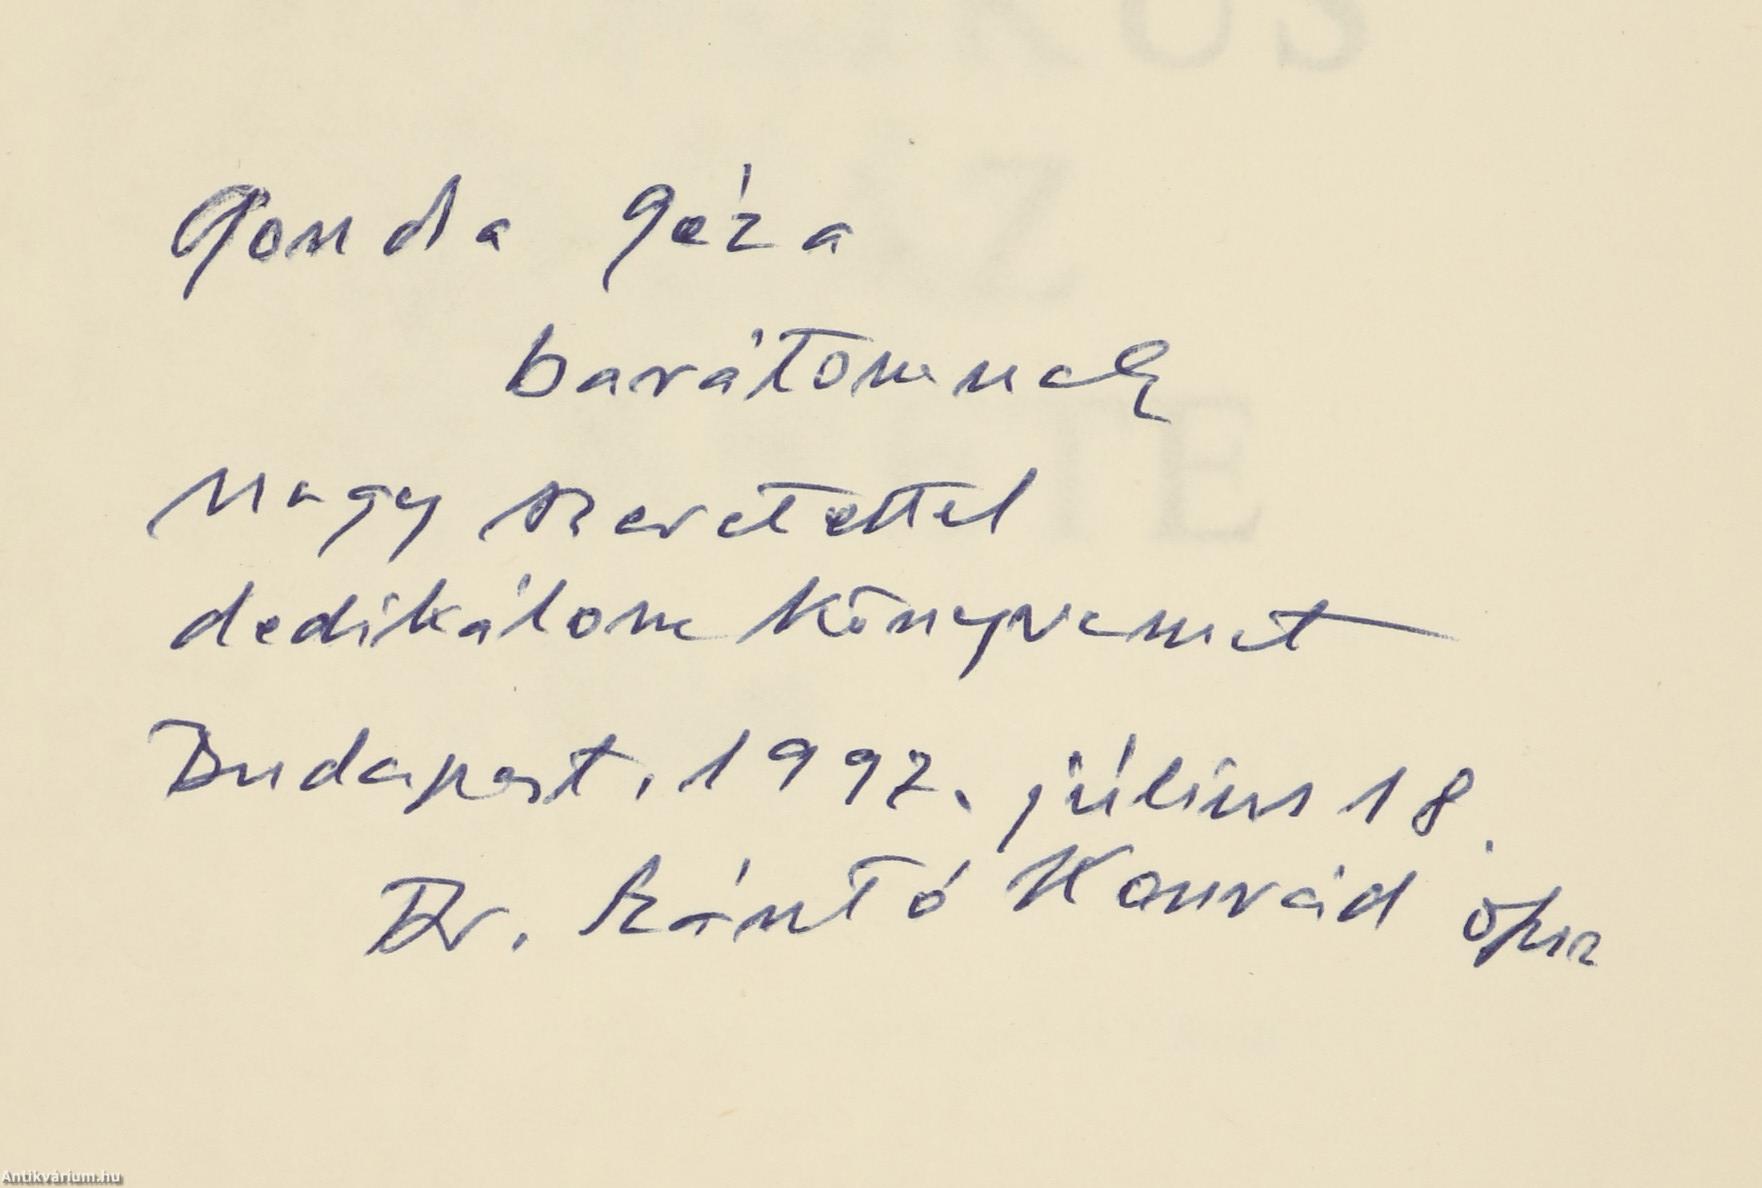 KUS
AZ
ETE
Gonda Géza
barátomnak
nagy szeretettel
dedikálom könyvemet
Budapest, 1992. július 18.
Dr. Szántó Konrád
Antikvárium.hu